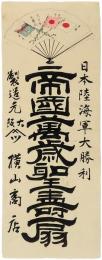 日本陸海軍大勝利
帝國萬歲聖壽扇
製造元
大阪
横山商店